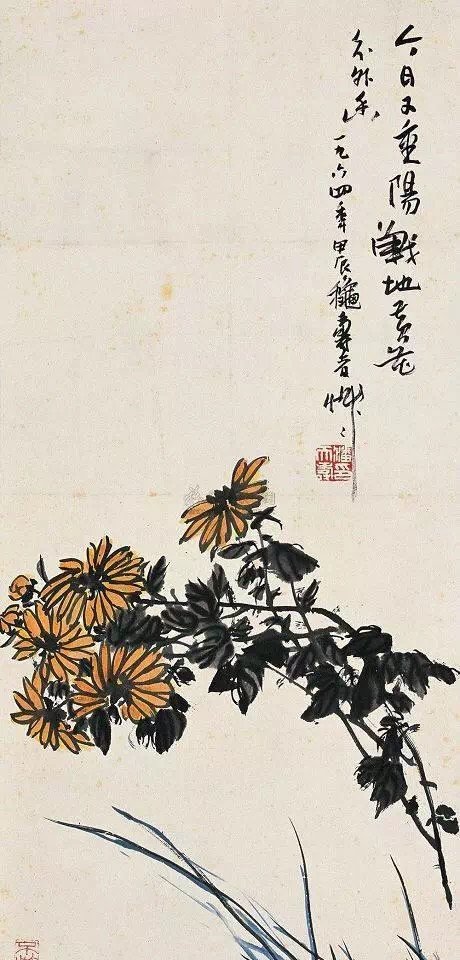 今日又重陽戰地黃花
分外香一九六四年甲辰龝壽者
潘天壽印